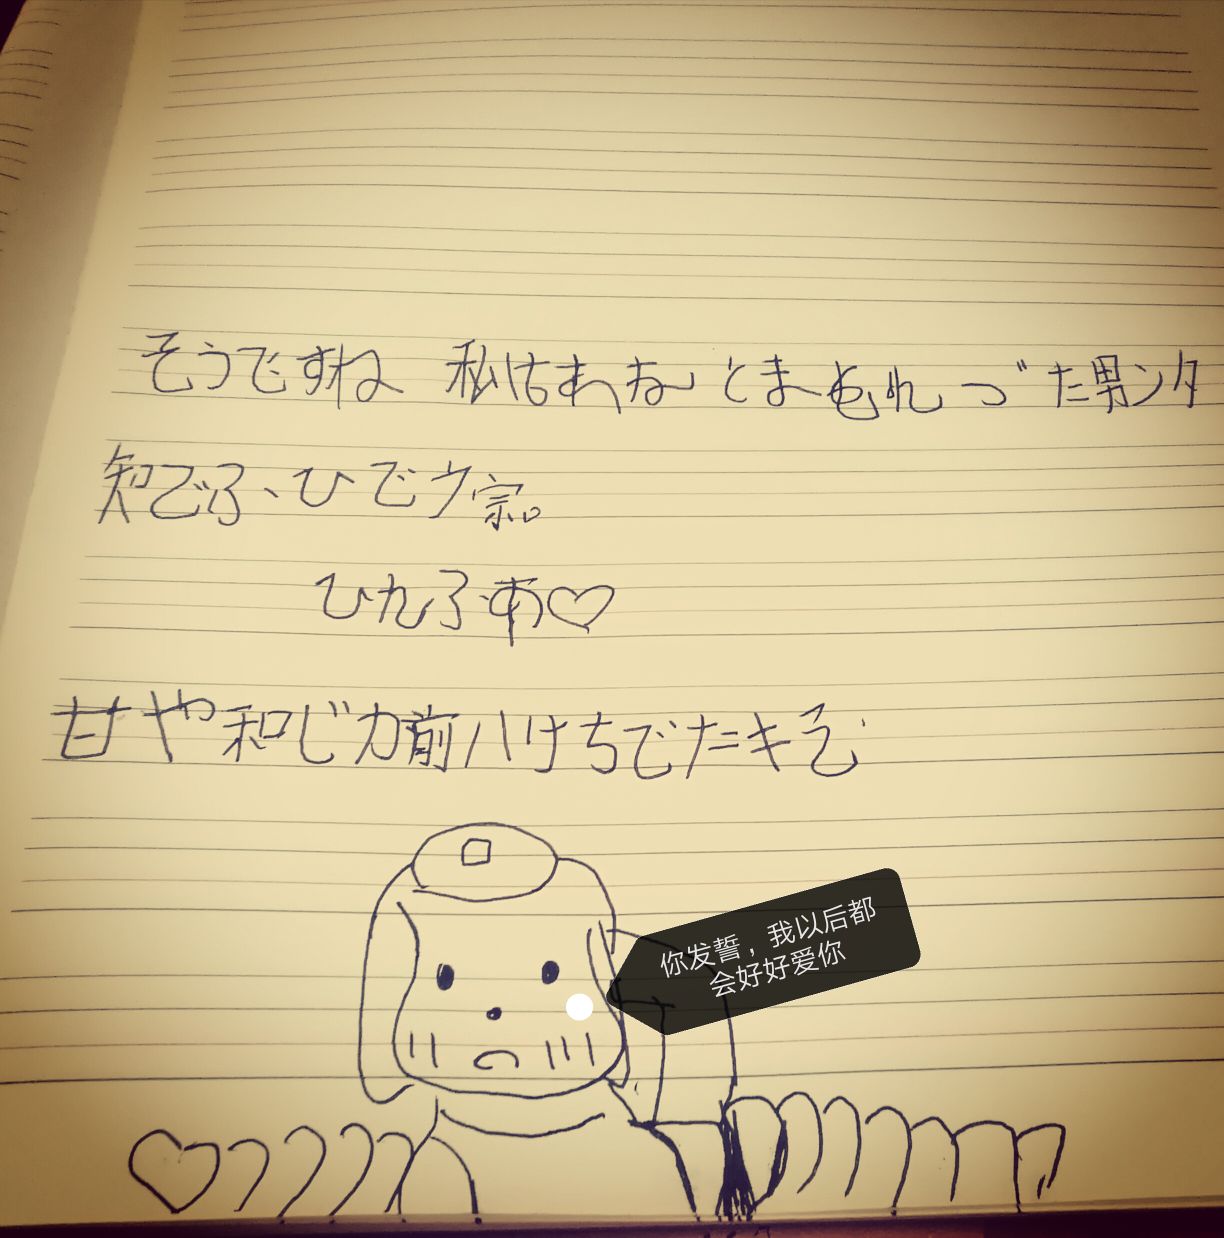 そうですね 私はあねとまもれづた男ンタ
知でふ、ひでウ宗。
ひれふあ♡
甘や和じカ前ハけちでたキそ
你发誓，我以后都
会好好爱你